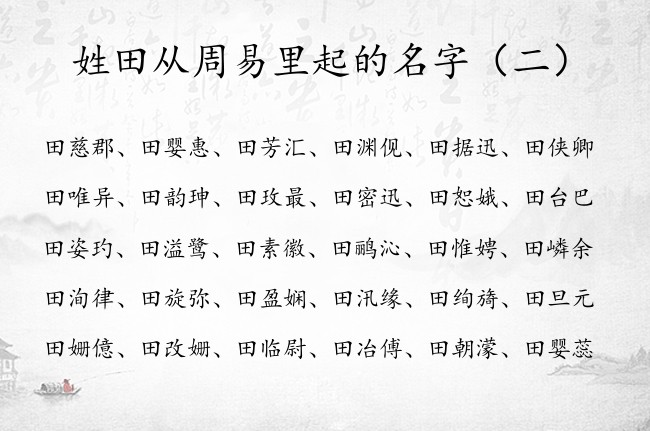 姓田从周易里起的名字（二）
田慈郡、田婴惠、田芳汇、田渊伣、田据迅、田侠卿
田唯异、田韵珅、田玫最、田密迅、田恕娥、田台巴
田姿玓、田溢鹭、田素徽、田鹂沁、田惟娉、田嶙余
田洵律、田旋弥、田盈娴、田汛缘、田绚旖、田旦元
田姗億、田改姗、田临尉、田冶傅、田朝濛、田婴蕊